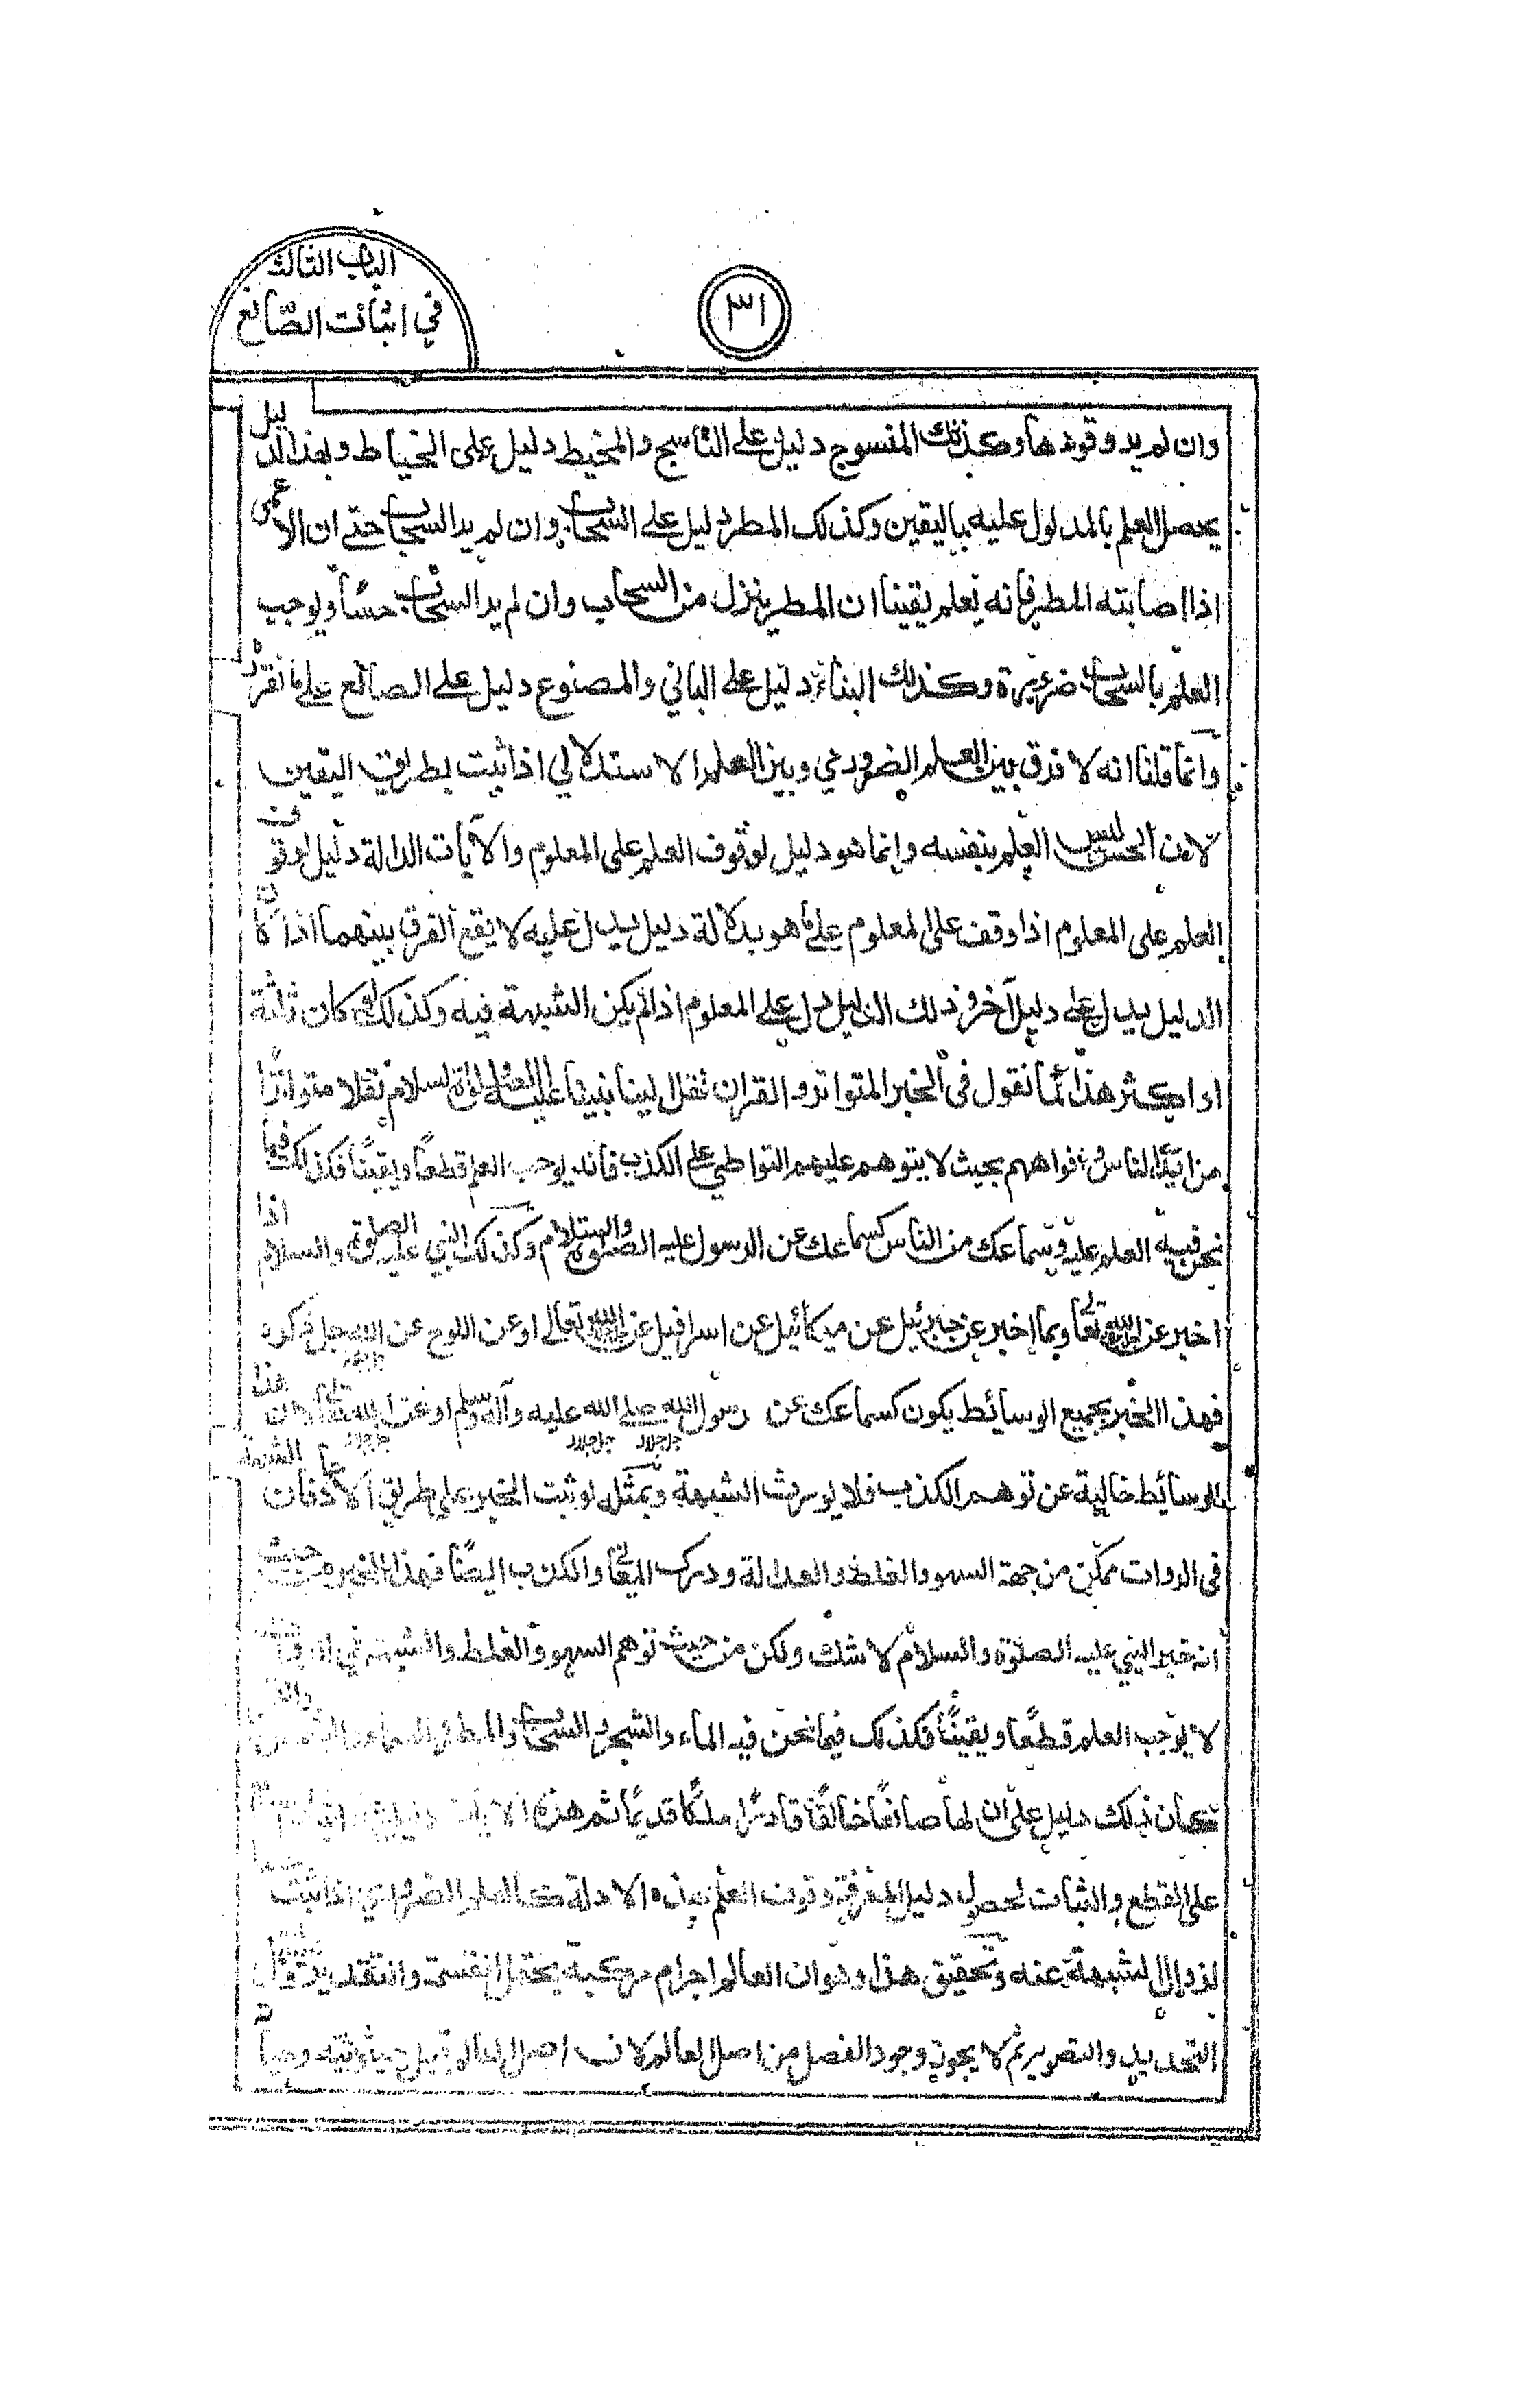 الباب الثالث
في اثبات الصّانع
٣١
وان لم يرد وقودها وكذلك المنسوج دليل على الناسج والمخيط دليل على الخياط وبهذا الدليل
يحصل العلم بالمدلول عليه باليقين وكذلك المطر دليل على السحاب وان لم ير السحاب حتى ان الاعمى
اذا اصابته المطر فانه يعلم يقينا ان المطر ينزل من السحاب وان لم ير السحاب حسّا ويوجب
العلم بالسحاب ضرورة وكذلك البناء دليل على الباني والمصنوع دليل على الصانع على ما نقرر
وانما قلنا انه لا فرق بين العلم الضروري وبين العلم الاستدلالي اذا ثبت بطريق اليقين
لان الحس ليس العلم بنفسه وانما هو دليل لوقوف العلم على المعلوم والآيات الدالة دليل لوقوف
العلم على المعلوم اذا وقف على المعلوم على ما هو بدلالة دليل يدل عليه لا يقع الفرق بينهما اذا كان
الدليل يدل على دليل آخر وذلك الدليل دل على المعلوم اذا لم يكن الشبهة فيه وكذلك لو كان ثلثة
او اكثر هذا كما نقول في الخبر المتواتر والقران نقل الينا نبينا عليه الصلوة والسلام نقلا متواترًا
من افواههم بحيث لا يتوهم عليهم التواطي على الكذب فانه يوجب العلم قطعًا ويقينًا فكذلك فيما
نحن فيه العلم عليه وسماعك من الناس كسماعك عن الرسول عليه الصلوة والسلام وكذلك النبي عليه الصلوة والسلام اذا
اخبر عن الله تعالى وبما اخبر عن جبرئيل عن ميكائيل عن اسرافيل عن الله تعالى او عن اللوح عن الله جل ذكره
فهذا الخبر بجميع الوسائط يكون كسماعك عن رسول الله صلى الله عليه وآله وسلم او عن الله تعالى لان هذا
الوسائط خالية عن توهم الكذب فلا يورث الشبهة وبمثله لو ثبت الخبر على طريق الآحاد فان الشبهة
في الروات ممكن من جهة السهو والغلط والعدالة ودرك المعاني والكذب ايضًا فهذا الخبر من حيث
انه خبر النبي عليه الصلوة والسلام لا شك ولكن من حيث توهم السهو والغلط والشبهة في
لا يوجب العلم قطعًا ويقينًا فكذلك فيما نحن فيه الماء والشجر والسحاب والمطر والسماء
كان ذلك دليل على ان لها صانعًا خالقًا قادرًا ملكًا قديمًا ثم هذه الآيات
على القطع والثبات لحصول دليل المعرفة وقوف العلم بهذه الادلة كالعلم الضروري اذا ثبت
لزوال الشبهة عنه وتحقيق هذا وهو ان العالم اجرام مركبة يحتمل القسمة والتقدير
التحديد والتصوير ثم لا يجوز وجود الفصل من اصل العالم لان اصل العالم قبل